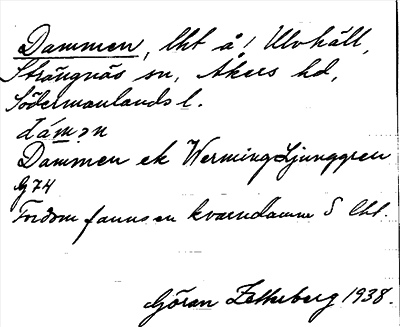 Dammen, lht å! Ulvhäll,
Strängnäs sn, Åkers hd,
Södermanlands l.
dámən
Dammen ek Werming-Ljunggren
g 74
Fordom fanns en kvarndamm S lht.
Göran Zetterberg 1938.